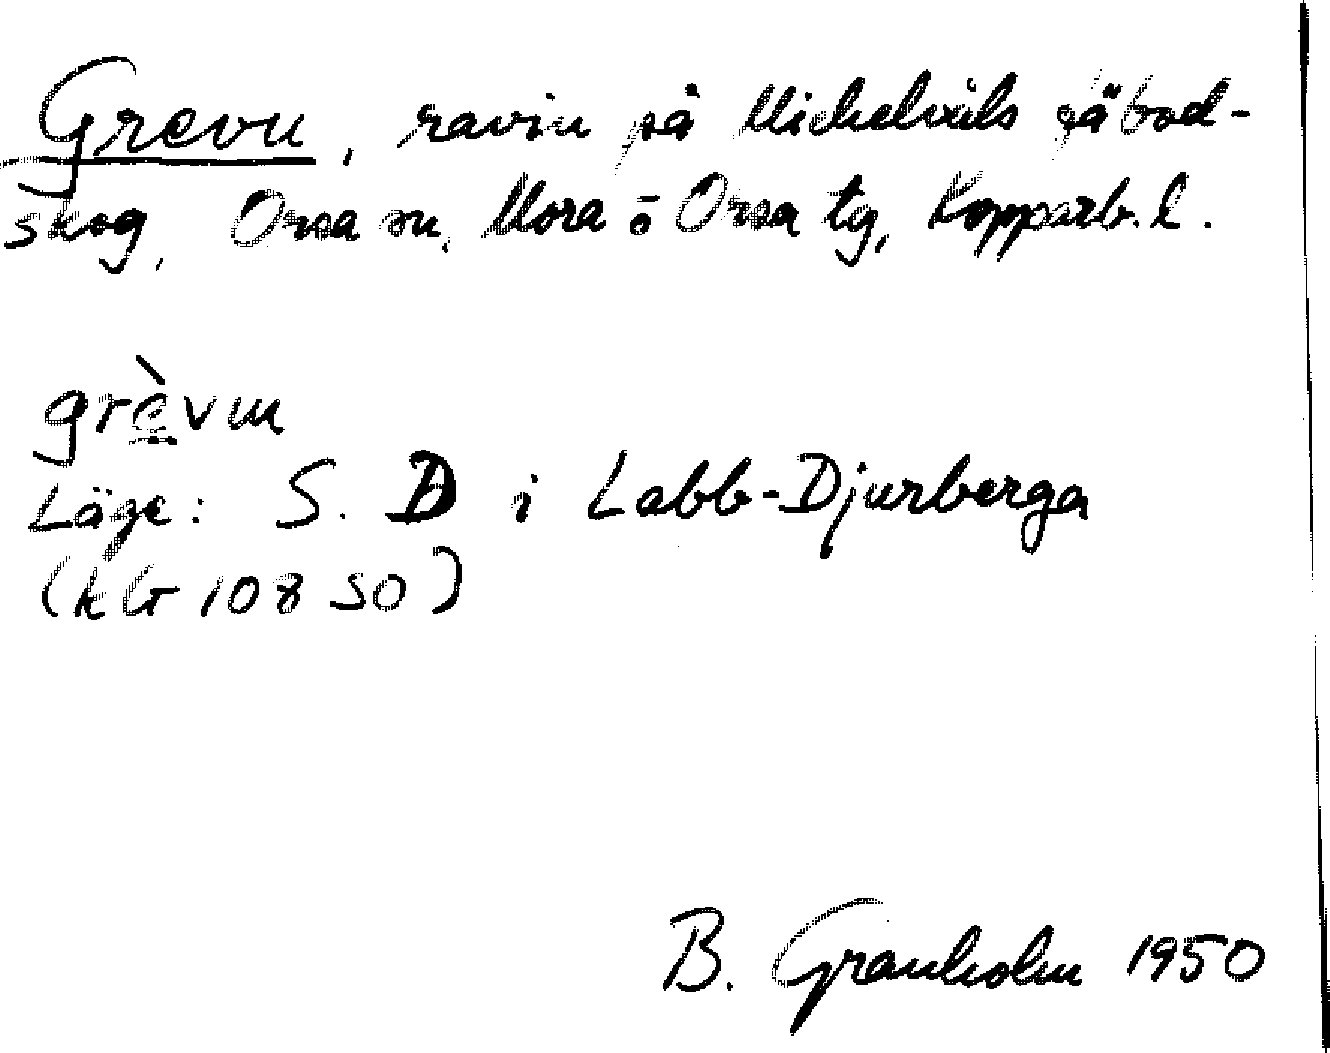 Grevu, ravin på Michelvåls fäbod-
skog, Orsa sn, Mora o Orsa tg, Kopparb. l.
grèvm
Läge: S. D i Labb-Djurberga
(kbr 108 SO)
B. Granholm 1950